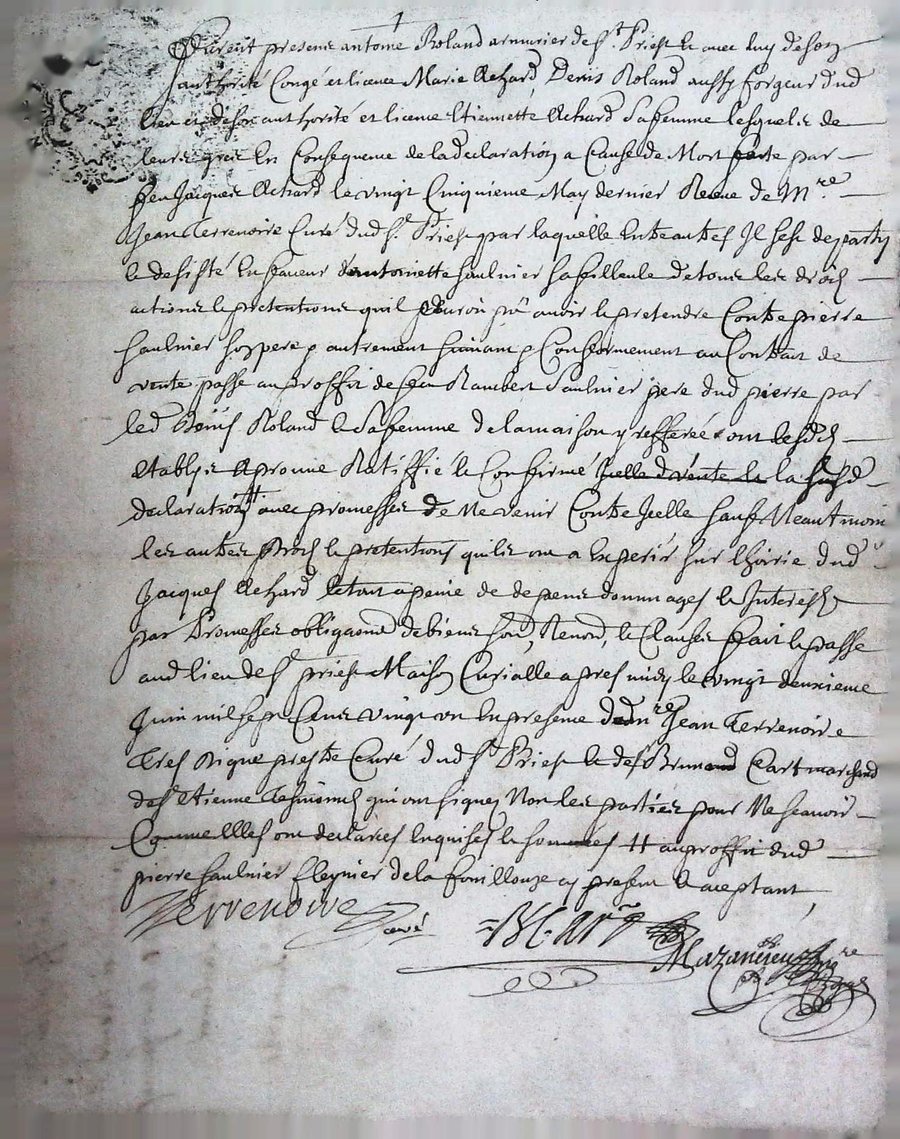 furent presens antoine Roland armurier de St Priest et avec luy de son
authorité Congé et licence Marie Achard, Denis Roland aussy forgeur dud
lieu et de son authorité et licence Etiennette Achard sa femme lesquels de
leurs grés En Consequence de la declaration a Cause de Mort faite par
feu Jacques Achard le vingt Cinquieme May dernier Receue de Mre
Jean Terrenoire Curé dud St Priest par laquelle Entre autres Il sest departy
et desisté En faveur d'antoinette saulnier sa filleule de tous les droits
actions et pretentions quil auroit pû avoir et pretendre Contre pierre
saulnier son pere autrement Conformement au Contrat de
vente passé au proffit de feu Rambert Saulnier pere dud pierre par
led Denis Roland et sa femme de la maison y refferée ont lesd
Etablis Approuvé Ratiffié et Confirmé la susd
declaration # avec promesses de Ne venir Contre Icelle sauf Neantmoins
les autres droits et pretentions quils ont a Esperer sur lhoirie dud
Jacques Achard a peine de depens dommages et Interests
par Promesses obligaons de biens soud, Renond, et Clauses fait et passé
aud lieu de St priest Maison Curialle apres midy le vingt deuxieme
Juin mil sept Cens vingt un En presence dud mre Jean Terrenoire
pretre Curé dud St Priest et de sr Cart marchand
de St Etienne tesmoins qui ont signez Non les parties pour Ne scavoir
Comme Elles ont declarées Enquises et sommées # au proffit dud
pierre saulnier de la fouillouze cy present et aceptant
Terrenoire Curé